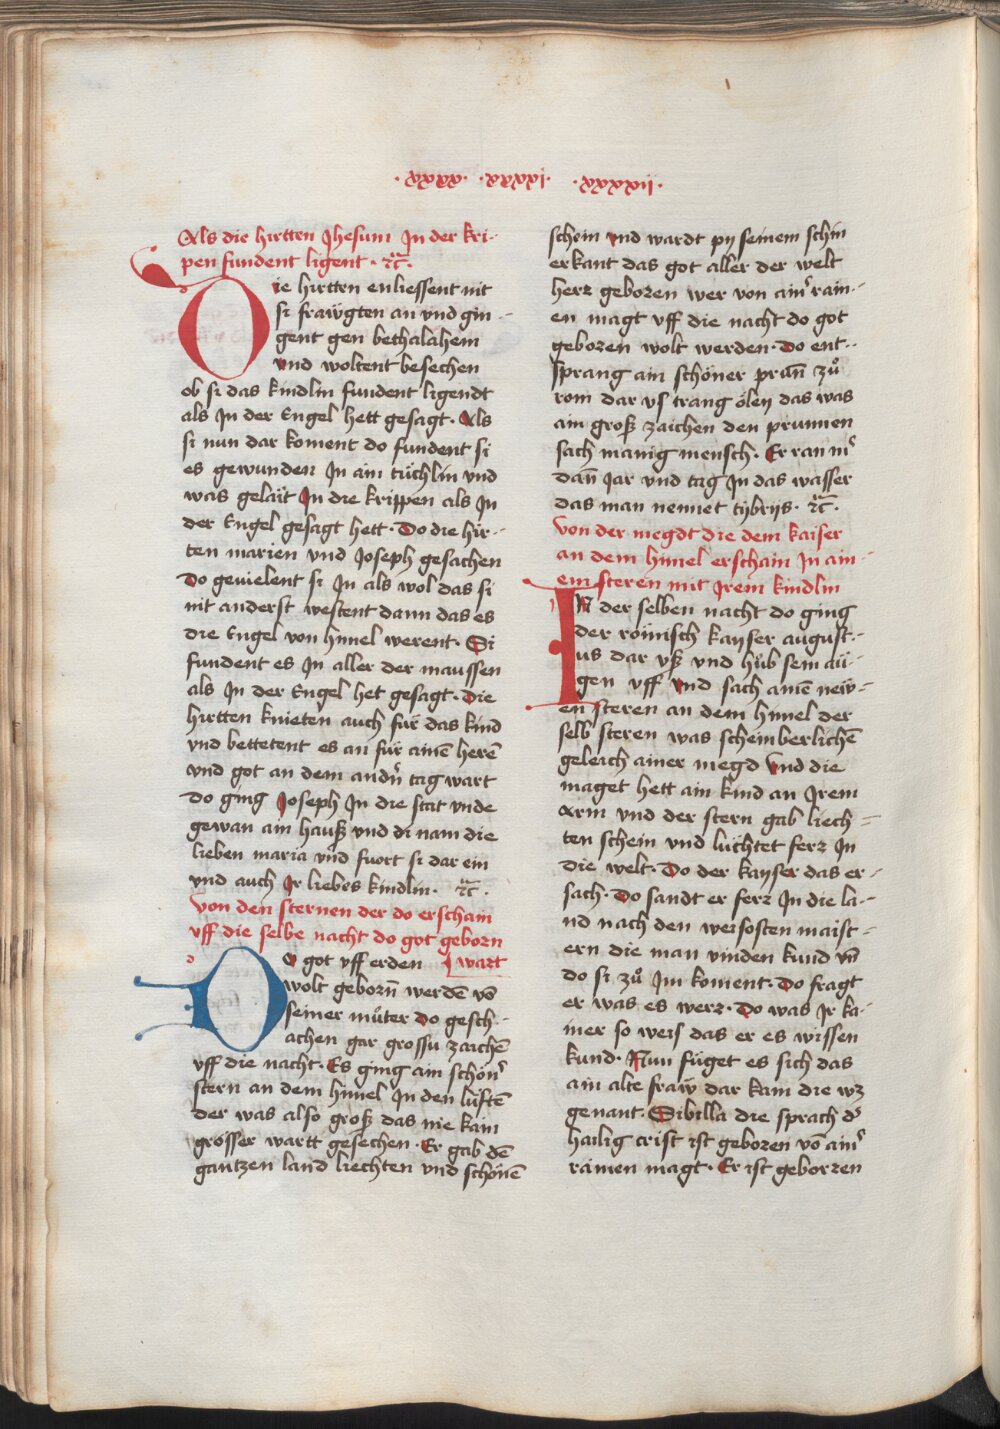 ·xxxx· ·xxxxi· ·xxxxii·
Als die hirtten Jhesum Jn der kri-
pen fundent ligent · ꝛc̃·
Die hirtten enliessent nit
si frawgten an vnd gin-
gent gen bethalahem
vnd woltent besechen
ob si das kindlin fundent ligendt
als Jn der Engel hett gesagt· Als
si nun dar koment do fundent si
es gewunden Jn ain tüchlin vnd
was gelait Jn die krippen als Jn
der Engel gesagt hett· Do die hir-
ten marien vnd Joseph gesachen
Do geuielent si Jn als wol das si
nit anderst westent dann das es
die Engel von himel werent· Si
fundent es Jn aller der maussen
als Jn der Engel het gesagt· Die
hirtten knieten auch für das kind
vnd bettetent es an für ainē herē
vnd got an dem andn̄ tag wart
Do ging Joseph Jn die stat vnde
gewan ain hauß vnd di nam die
lieben maria vnd fuort si dar ein
vnd auch Jr liebes kindlin· ꝛc̃·
Von den sternen der do erschain
vff die selbe nacht do got geborn
wart
Do got vff erden
wolt geborn̄ werdē vō
seiner muͦter do gesch-
achen gar grossu zaichē
vff die nacht· Es ging ain schön̉
stern an dem himel Jn den lüftē
der was also groß das nie kain
grösser wartt gesechen· Er gab dē
gantzen land liechten vnd schönē
schein vnd wardt py seinem schin
erkant das got aller der welt
herz geboren wer von ain̉ rain-
en magt vff die nacht do got
geboren wolt werden· Do ent-
sprang ain schöner prun̄ zuͦ
rom dar vs trang ölen das was
ain groß zaichen den prunnen
sach manig mensch· Er ran m̉
dan̄ Jar vnd tag Jn das wasser
das man nennet tybrijs· ꝛc̃·
Von der megdt die dem kaiser
an dem himel erschain Jn ain-
em steren mit Jrem kindlin
IN der selben nacht do ging
der römisch kayser august-
us dar vß vnd huͦb sein aü-
gen vff vnd sach ainē new-
en steren an dem himel der
selb steren was scheinberlichē
geleich ainer megd vnd die
maget hett ain kind an Jrem
Arm vnd der stern gab liech-
ten schein vnd lüchtet ferz Jn
die welt· Do der kayser das er-
sach· Do sandt er ferz Jn die la-
nd nach den weisosten maist-
ern die man vinden kund vn̄
do si zuͦ Jm koment· Do fragt
er was es werz· Do was Jr ka-
iner so weis das er es wissen
kund· Nun füget es sich das
ain alte fraw dar kam die wz
genant· Sibilla die sprach d̉
hailig crist ist geboren vō ain̉
rainen magt· Er ist geborren